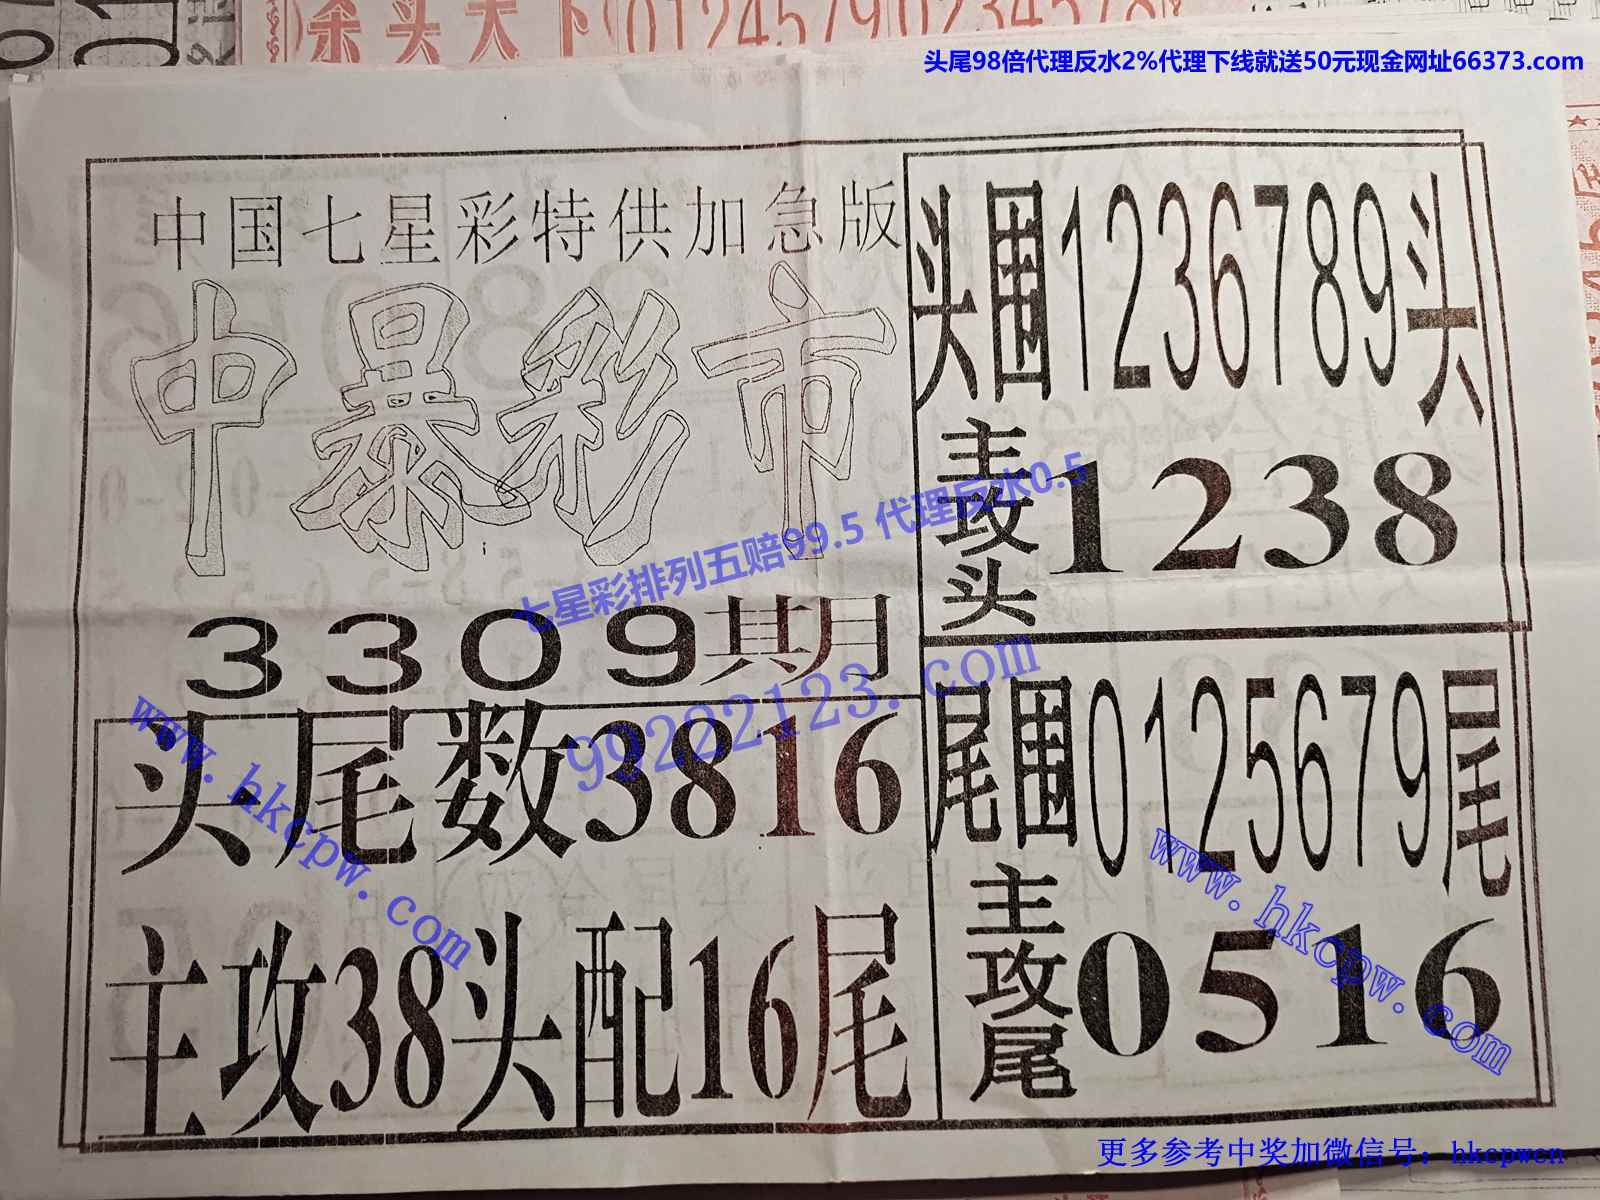 杀头天下0124579023457​8
头尾98倍代理反水2%代理下线就送50元现金网址66373.com
中国七星彩特供加急版
中暴彩市
3309期
头尾数3816
主攻38头配16尾
头围1236789头
主攻头1238
尾围0125679尾
主攻尾0516
七星彩排列五赔99.5 代理反水0.5
99222123.com
www.hkcpw.com
www.hkcpw.com
更多参考中奖加微信号：hkcpwcn